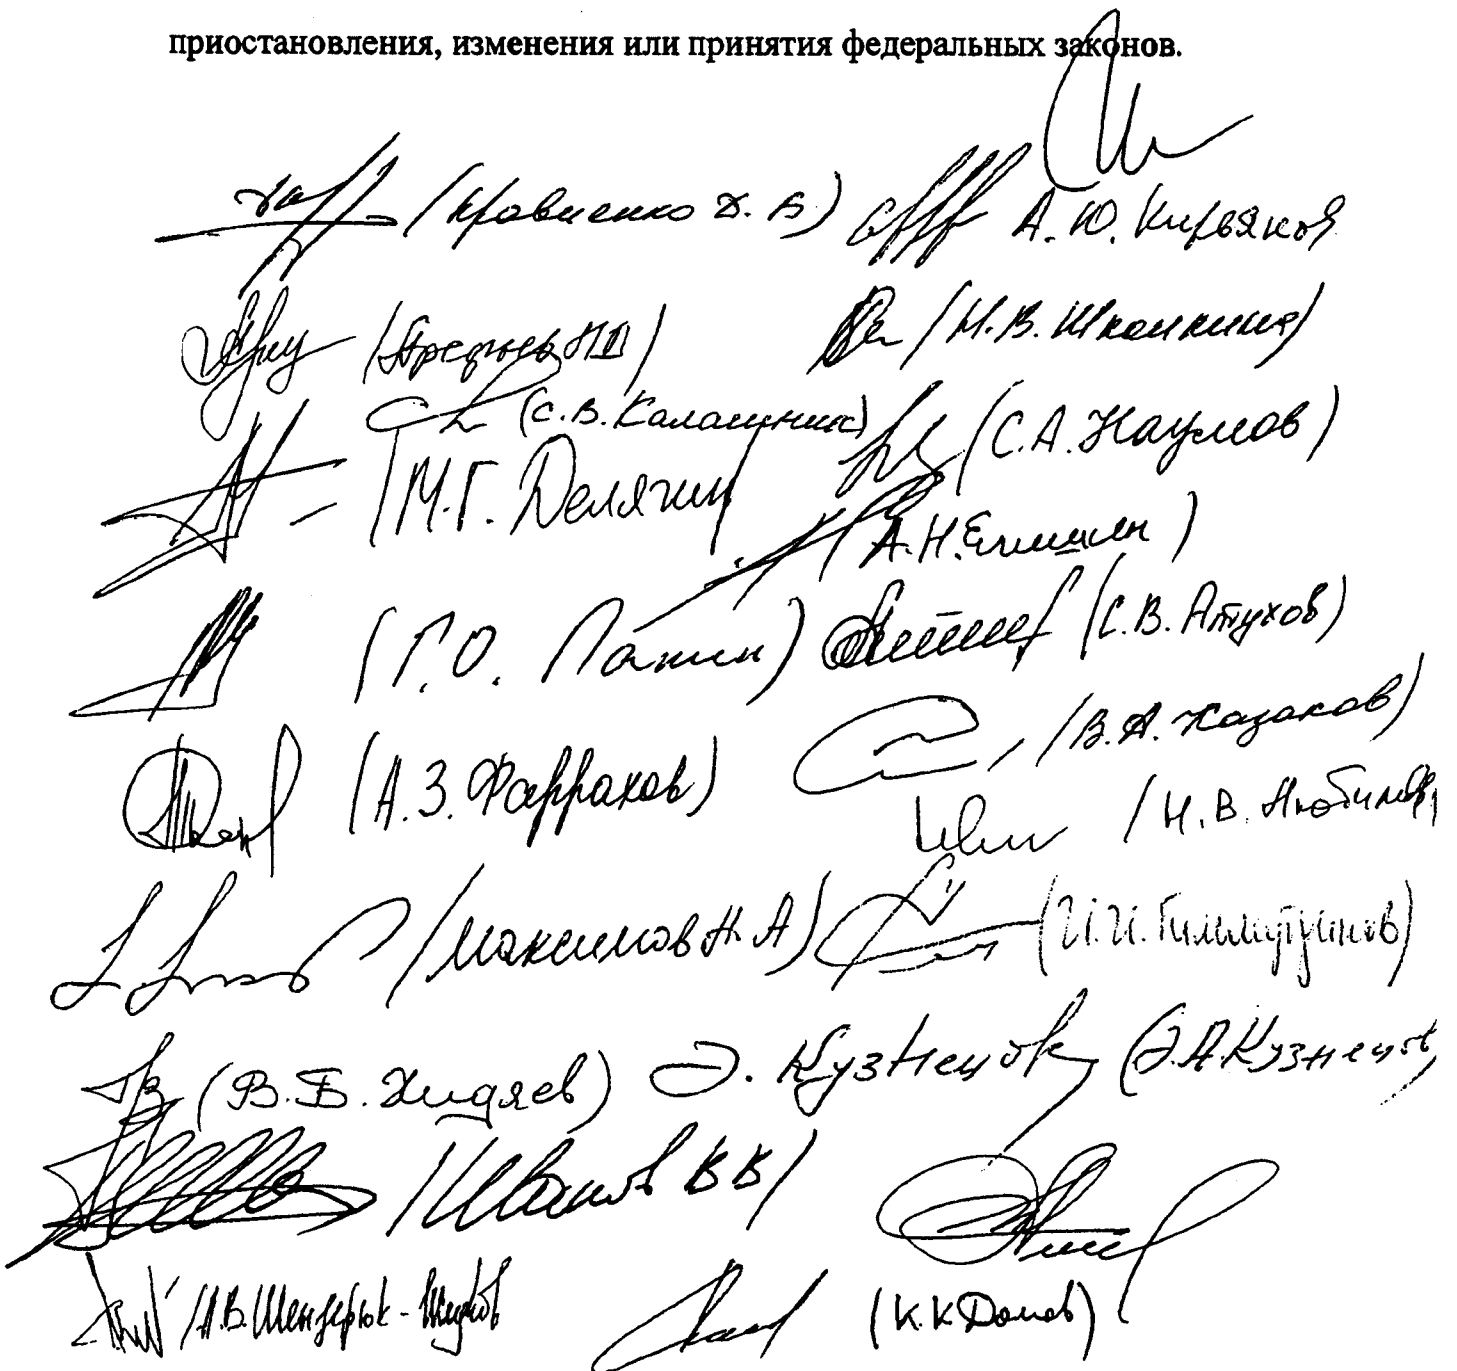 приостановления, изменения или принятия федеральных законов.
(Кравченко Д. Б) А. Ю. Кирьянов
(Н. В. Школкина)
(С. В. Калашник) (С. А. Наумов)
(М. Г. Делягин
А. Н. )
(Г. О. ) (С. В. Алтухов)
(В. А. Казаков)
(А. З. Фаррахов)
(Н. В. Любимов,
(Максимов Н. А) (И. И. Гильмутдинов)
(В. Б. Кидяев) Э. Кузнецов (Э. А. Кузнецов
(Иванов В В)
(А. В. Шендерюк-Жидков (К. К Долов)